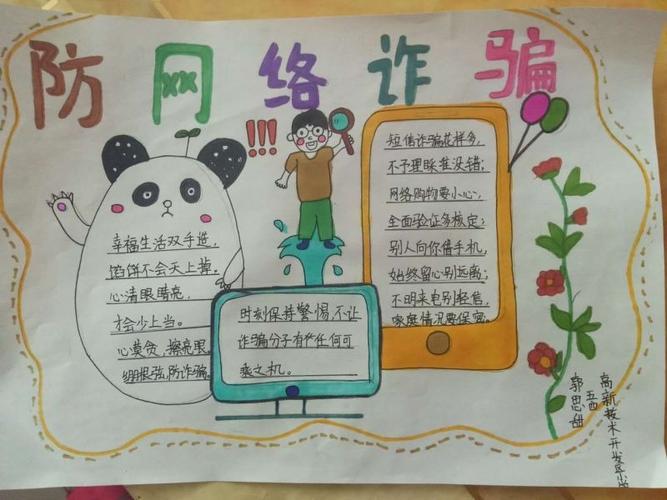 防网络诈骗
!!!
幸福生活双手造,
馅饼不会天上掉,
心清眼睛亮,
才会少上当。
心莫贪,擦亮眼,
绷根弦,防诈骗。
时刻保持警惕,不让
诈骗分子有任何可
乘之机。
短信诈骗花样多,
不予理睬准没错;
网络购物要小心,
全面验证多核定;
别人向你借手机,
始终留心别远离;
不明来电别轻信,
家庭情况要保密。
高新技术开发区小学
五四
郭思甜